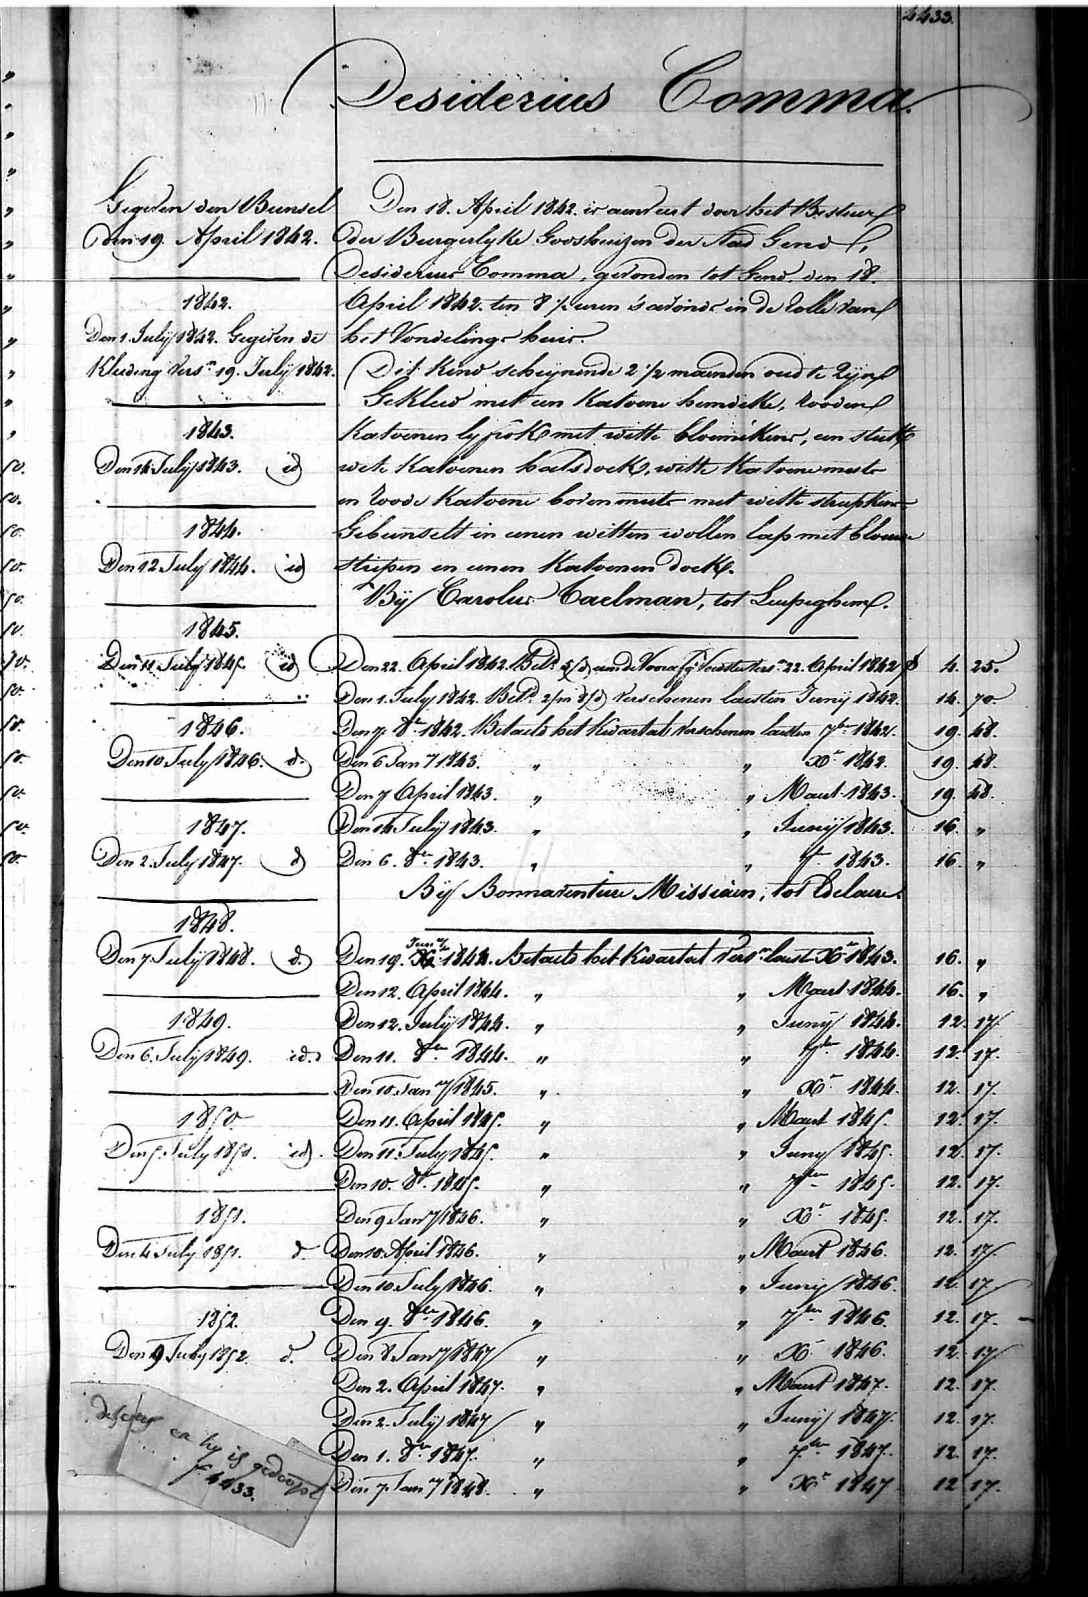 4433.
Desiderius Comma.
Gegeven den Bunsel
den 19. April 1842.
1842.
Den 1. July 1842. Gegeven de
Kleeding Vers.n 19. July 1842.
1843.
Den 14 July 1843. id
1844.
Den 12 July 1844. id
1845.
Den 11 July 1845. id
1846.
Den 10 July 1846. d.
1847.
Den 2. July 1847. d
1848.
Den 7 July 1848. d.
1849.
Den 6. July 1849. id.
1850.
Den 5. July 1850. id.
1851.
Den 4 July 1851. d.
1852.
Den 9 July 1852. d.
en hy is gedoopt
f.o 4433.
Den 18. April 1842. is aenveert door het Bestuer
der Burgerlyke Godshuizen der Stad Gend,
Desiderius Comma, gevonden tot Gend den 18.
April 1842. ten 8 ½ uren s'avonds in de Rolle van
het Vondelings huis.
Dit Kind scheynende 2 1/2 maenden oud te Zyn
Gekleed met een Katoene hemdeke, Rooden
Katoenen lyfrok met witte bloemekens, een stuk
wit Katoenen halsdoek, witte Katoene muts
en Roode Katoene bovenmuts met witte streepkens
Gebunselt in eenen witten wollen lap met blauwe
strepen en eenen Katoenen doek.
By Carolus Taelman, tot Leupeghem.
Den 22. April 1842. Bet.d aen de Vers.n 22. April 1842 4. 25.
Den 1. July 1842. Bet.d 2/m Verschenen laesten Juny 1842. 14. 70
Den 7 8.r 1842. Betaeld het Kwartael Verschenen laesten 7.ber 1842. 19. 48.
Den 6 Jan.y 1843. " " X.r 1842. 19. 48.
Den 7 April 1843. " " Maert 1843. 19. 48.
Den 14 July 1843. " " Juny 1843. 16. "
Den 6. 8.r 1843. " " 7.r 1843. 16. "
By Bonnaventure Missiaen, tot Edelaere.
Den 19. Jan.y 1844. Betaeld het Kwartael Vers.n laest X.r 1843. 16. "
Den 12. April 1844. " " Maert 1844. 16. "
Den 12. July 1844. " " Juny 1844. 12. 17.
Den 11. 8.er 1844. " " 7.ber 1844. 12. 17.
Den 10 Jan.y 1845. " " X.r 1844. 12. 17.
Den 11. April 1845. " " Maert 1845. 12. 17.
Den 11. July 1845. " " Juny 1845. 12. 17.
Den 10. 8.r 1845. " " 7.ber 1845. 12. 17.
Den 9 Jan.y 1846. " " X.r 1845. 12. 17.
Den 10. April 1846. " " Maert 1846. 12. 17.
Den 10 July 1846. " " Juny 1846 12. 17
Den 9. 8.ber 1846. " " 7.ber 1846. 12. 17.
Den 8 Jan.y 1847 " " X.r 1846. 12. 17
Den 2. April 1847. " " Maert 1847. 12. 17.
Den 2. July 1847 " " Juny 1847. 12. 17.
Den 1. 8.r 1847. " " 7.ber 1847. 12. 17.
Den 7. Jan.y 1848. " " X.r 1847 12 17.